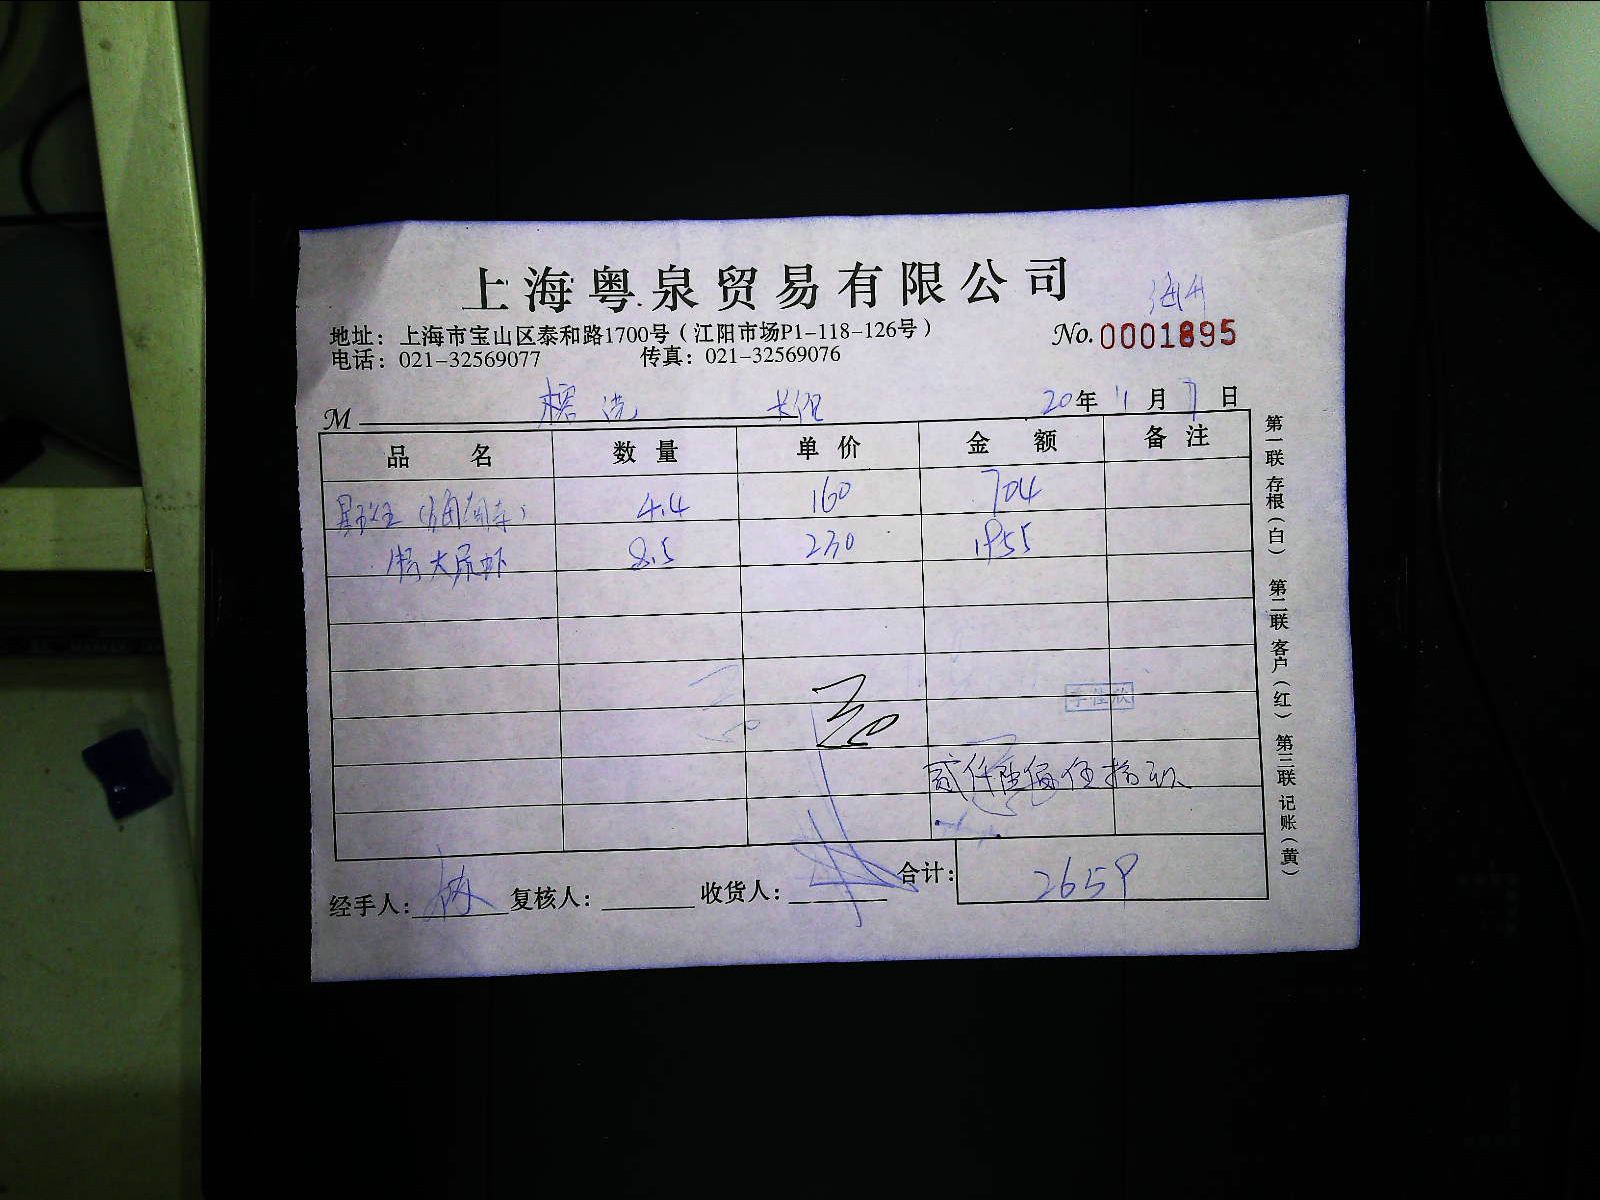 上海粤泉贸易有限公司
地址：上海市宝山区泰和路1700号（江阳市场P1-118-126号）
No.0001895
电话：021-32569077 传真：021-32569076
M
20年 11月 7日
品名 数量 单价 金额 备注
4.4 160 704
大尾虾 8.5 230 1955
李佳欣
贰仟陆佰伍拾
合计：2659
经手人： 复核人： 收货人：
第一联 存根（白） 第二联 客户（红） 第三联 记账（黄）